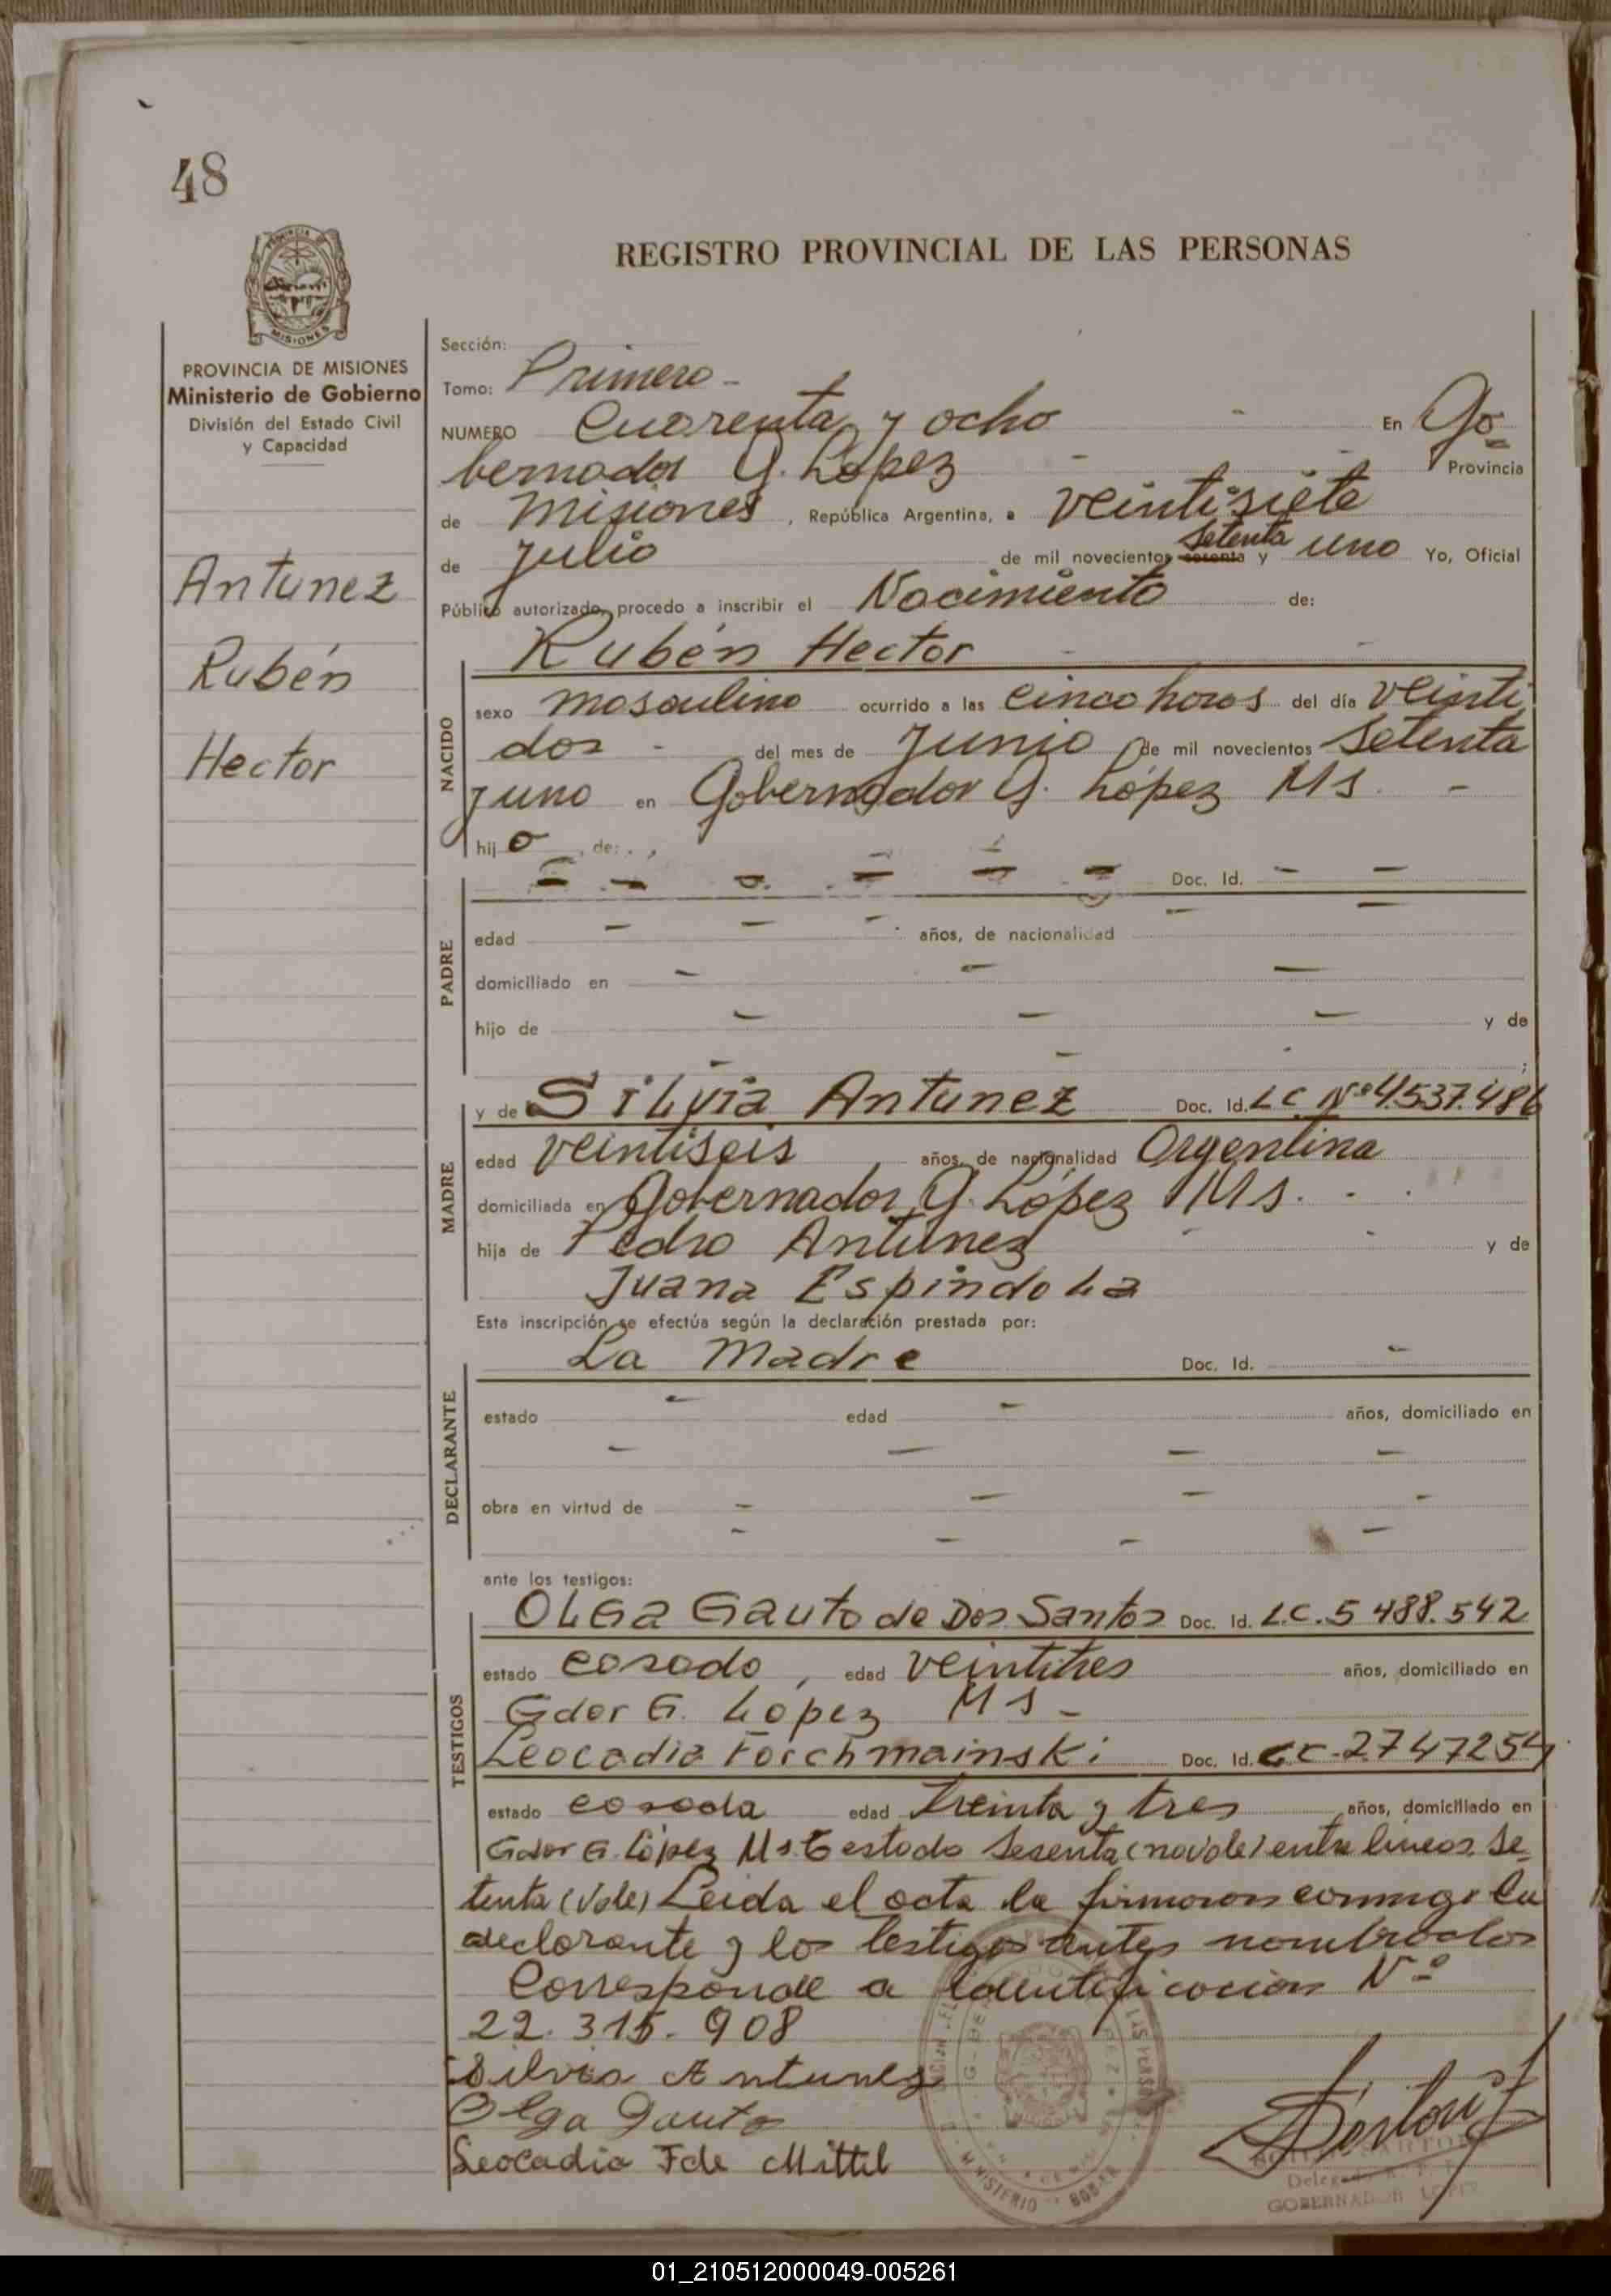 48
REGISTRO PROVINCIAL DE LAS PERSONAS
PROVINCIA DE MISIONES
Ministerio de Gobierno
División del Estado Civil
y Capacidad
Antunez
Rubén
Hector
Sección:
Tomo: Primero -
NUMERO Cuarenta y ocho - En Go=
bernador G. López - Provincia
de Misiones, República Argentina, a veintisiete
setenta
de Julio de mil novecientos sesenta y uno Yo, Oficial
Público autorizado, procedo a inscribir el Nacimiento de:
Rubén Hector
NACIDO
sexo masculino ocurrido a las cinco horas del día veinti
dos - del mes de Junio de mil novecientos setenta
y uno en Gobernador G. López Ms. -
hijo de:
PADRE
Doc. Id. - -
edad - - - años, de nacionalidad - -
domiciliado en - - -
hijo de - - - y de
- - ;
MADRE
y de Silvia Antunez Doc. Id. L C Nº 4.537.486
edad veintiseis años, de nacionalidad Argentina
domiciliada en Gobernador G. López Ms.
hija de Pedro Antunez y de
Juana Espindola
Esta inscripción se efectúa según la declaración prestada por:
DECLARANTE
La Madre Doc. Id. -
estado - edad - años, domiciliado en
- - - -
obra en virtud de - - - -
- - - -
ante los testigos:
TESTIGOS
Olga Gauto de Dos Santos Doc. Id. L.C. 5 488.542
estado casado, edad veintitres años, domiciliado en
Gdor G. López Ms -
Leocadia Forchmainski Doc. Id. LC. 2747254
estado casada edad treinta y tres años, domiciliado en
Gdor G. López Ms. Testado sesenta (no vale) entre lineas se-
tenta (vale) Leida el acta la firmaron conmigo la
declarante y los testigos antes nombrados
Corresponde a Identificación Nº
22.315.908
Silvia Antunez
Olga Gauto
Leocadia F de Mittel
MINISTERIO
SARTORI
GOBERNADOR LOPEZ
01_210512000049-005261